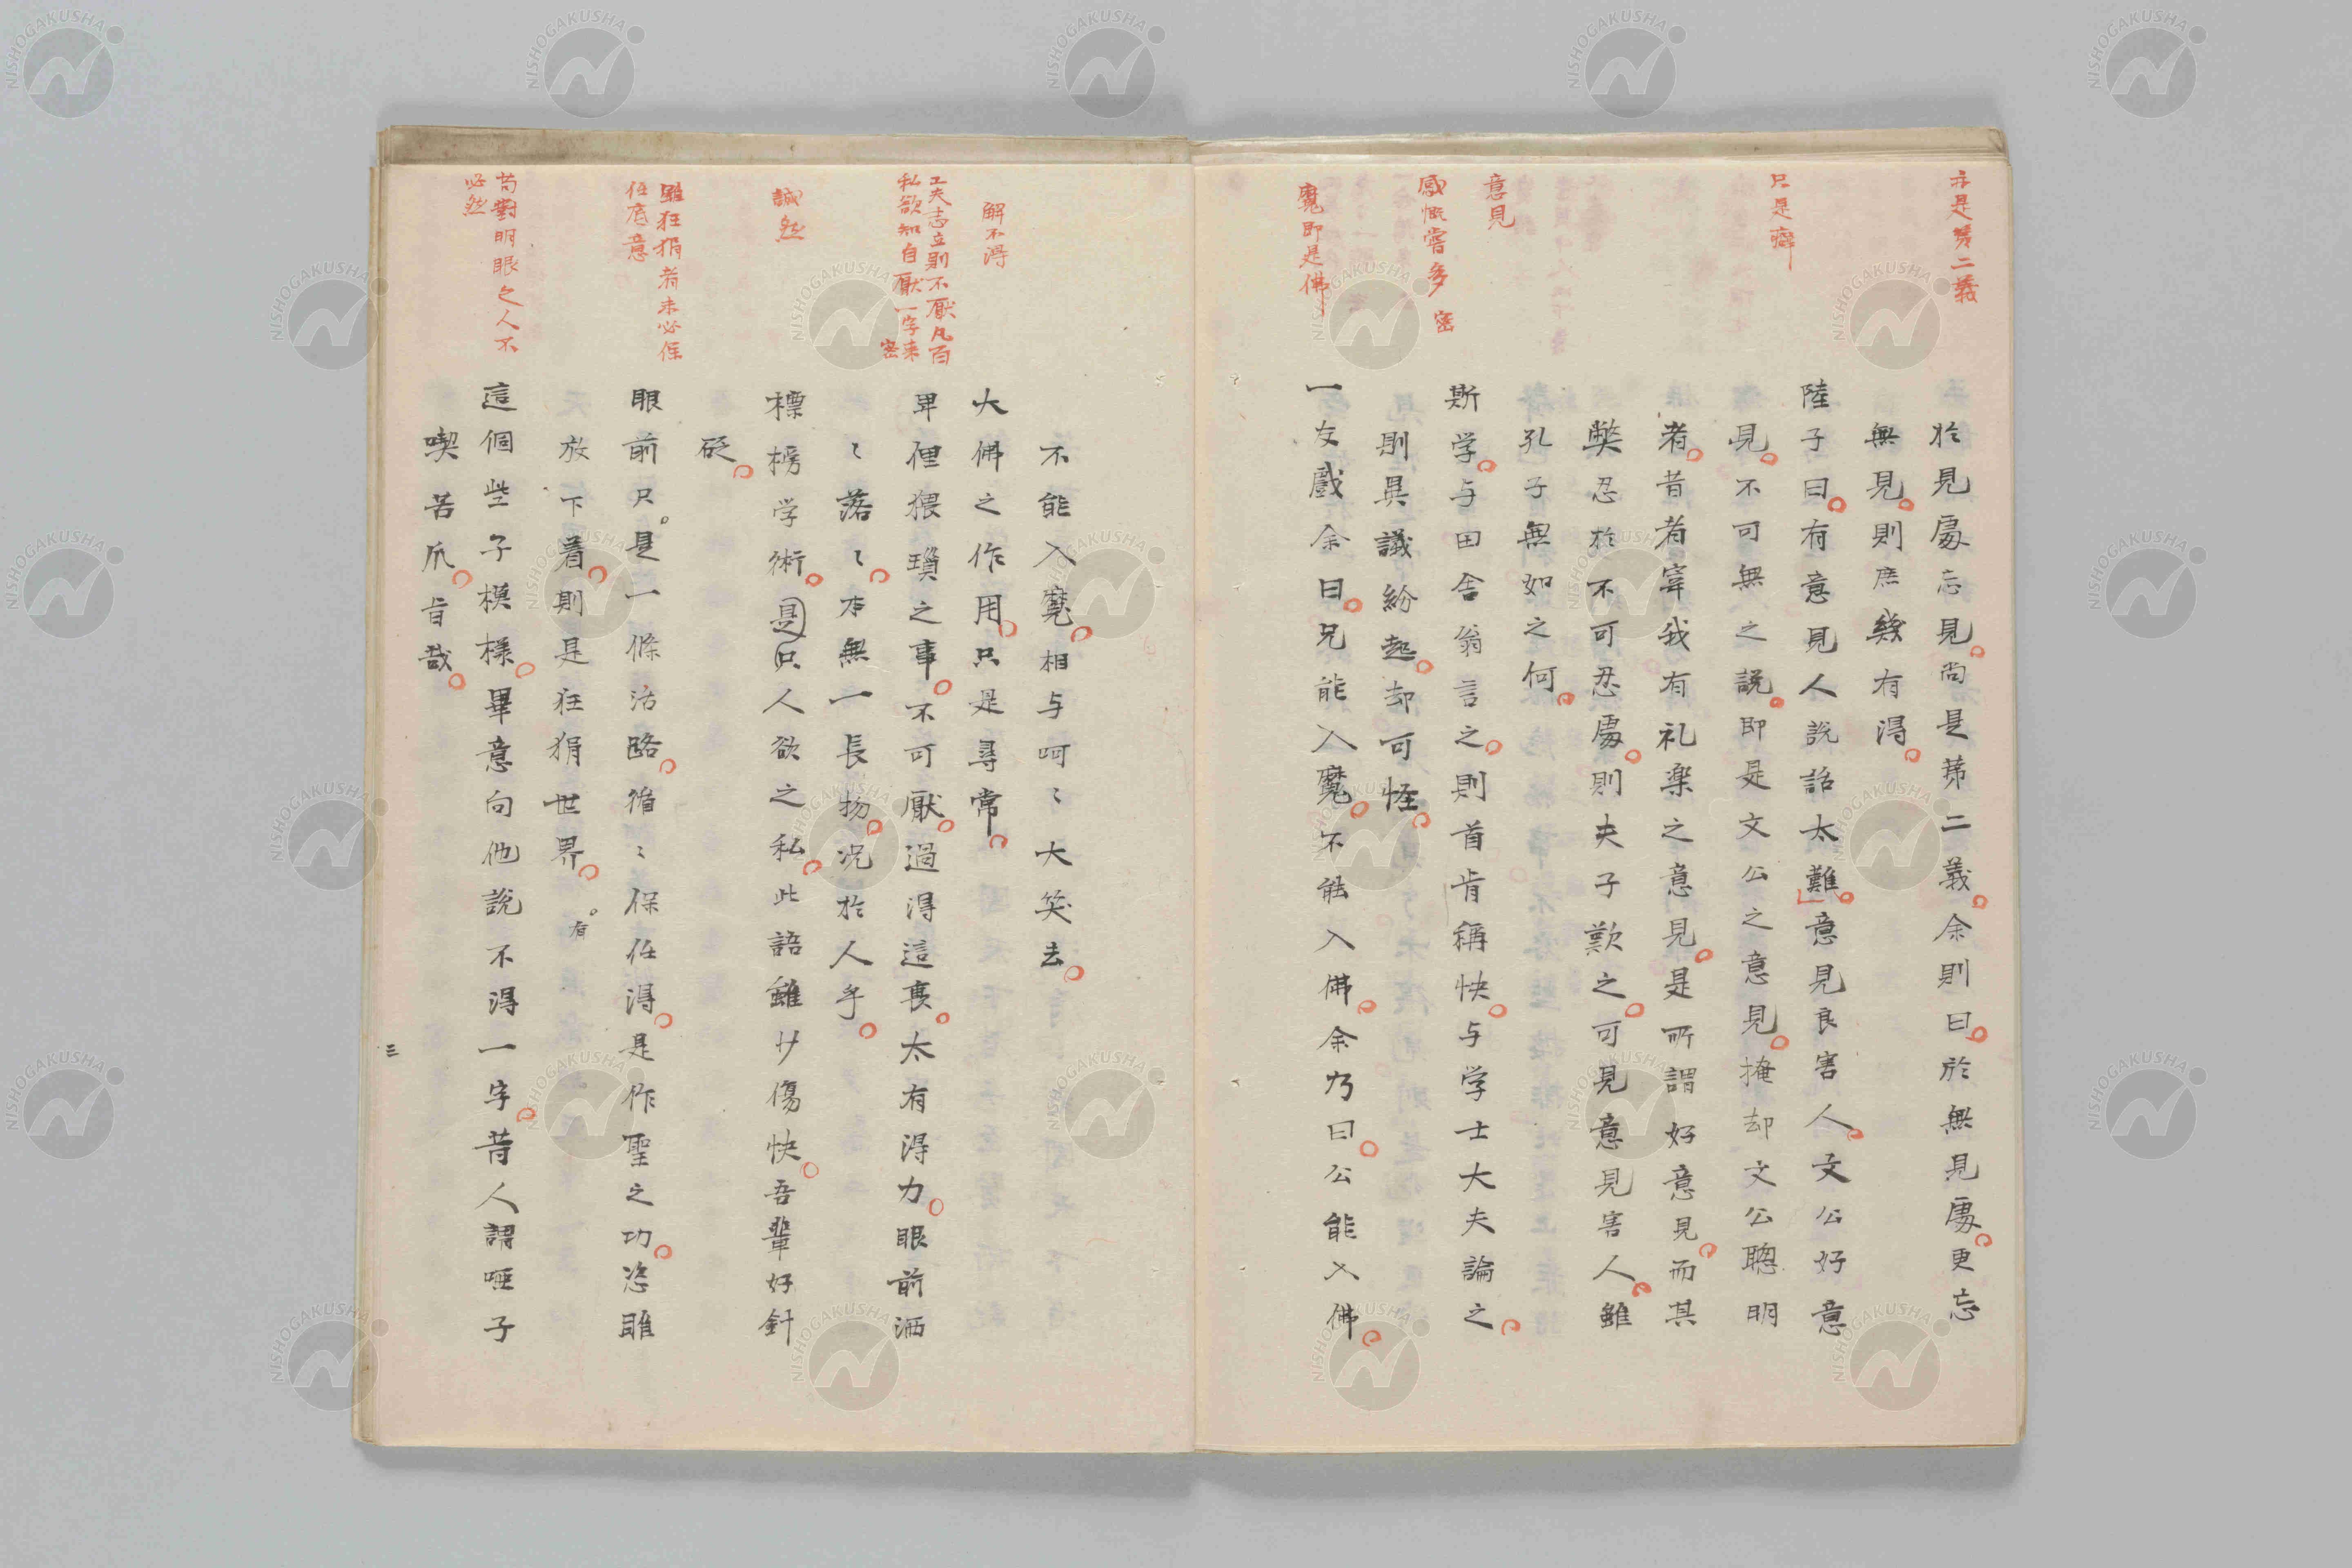 亦是第二義
只是癖
意見
感慨當多 密
魔即是佛
於見處忘見尚是第二義余則曰於無見處更忘
無見則庶幾有得
陸子曰有意見人說話太難意見良害人文公好意
見不可無之説即是文公之意見掩却文公聰明
者昔者宰我有礼楽之意見是所謂好意見而其
弊忍於不可忍處則夫子歎之可見意見害人雖
孔子無如之何
斯学与田舎翁言之則首肯稱快与学士大夫論之
則異議紛起却可怪
一友戯余曰兄能入魔不能入佛余乃曰公能入佛
解不得
工夫志立則不厭凡百
私欲知自厭一字来
密
誠然
雖狂狷者未必任
任底意
苟對明眼之人不
必然
不能入魔相与呵〻大笑去
大佛之作用只是尋常
卑俚猥瑣之事不可厭過得這裏太有得力眼前洒
〻落〻本無一長物况於人乎
標榜学術是只人欲之私此語雖少傷快吾輩好針
砭
眼前只是一條活路循〻保任得是作聖之功恣睢
放下着則是狂狷世界
有
這個些子模様畢意向他說不得一字昔人謂啞子
喫苦瓜旨哉
三
NISHOGAKUSHA